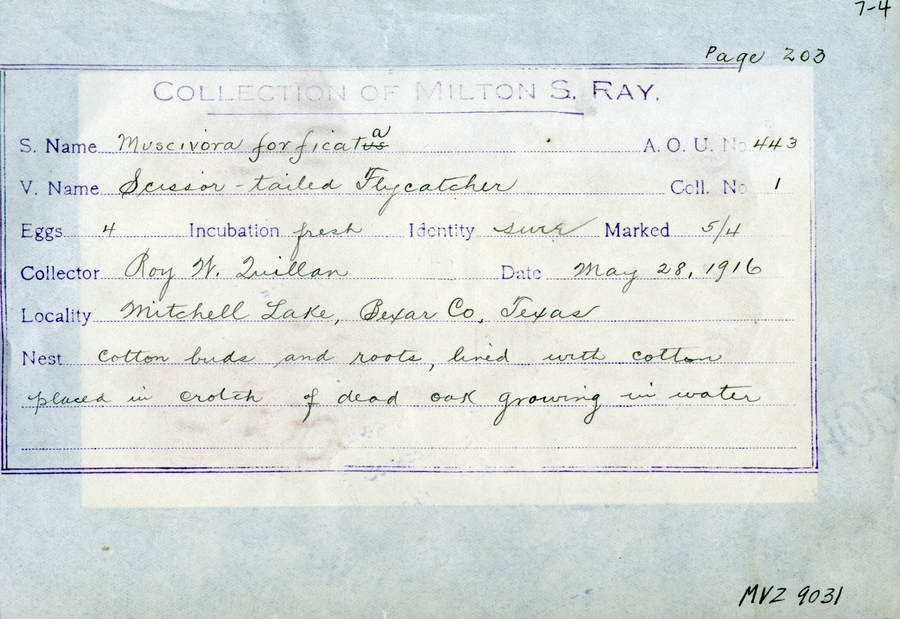 7-4
Page 203
COLLECTION OF MILTON S. RAY.
S. Name Muscivora forficatusa A. O. U. No 443
V. Name Scissor-tailed Flycatcher Coll. No 1
Eggs 4 Incubation fresh Identity sure Marked 5/4
Collector Roy W. Quillan Date May 28, 1916
Locality Mitchell Lake, Bexar Co, Texas
Nest cotton buds and roots, lined with cotton
placed in crotch of dead oak growing in water
MVZ 9031